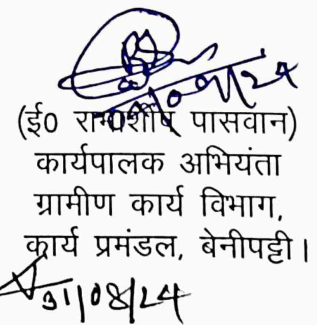 (ई० रामाशीष पासवान)
कार्यपालक अभियंता
ग्रामीण कार्य विभाग,
कार्य प्रमंडल, बेनीपट्टी।
31/08/24